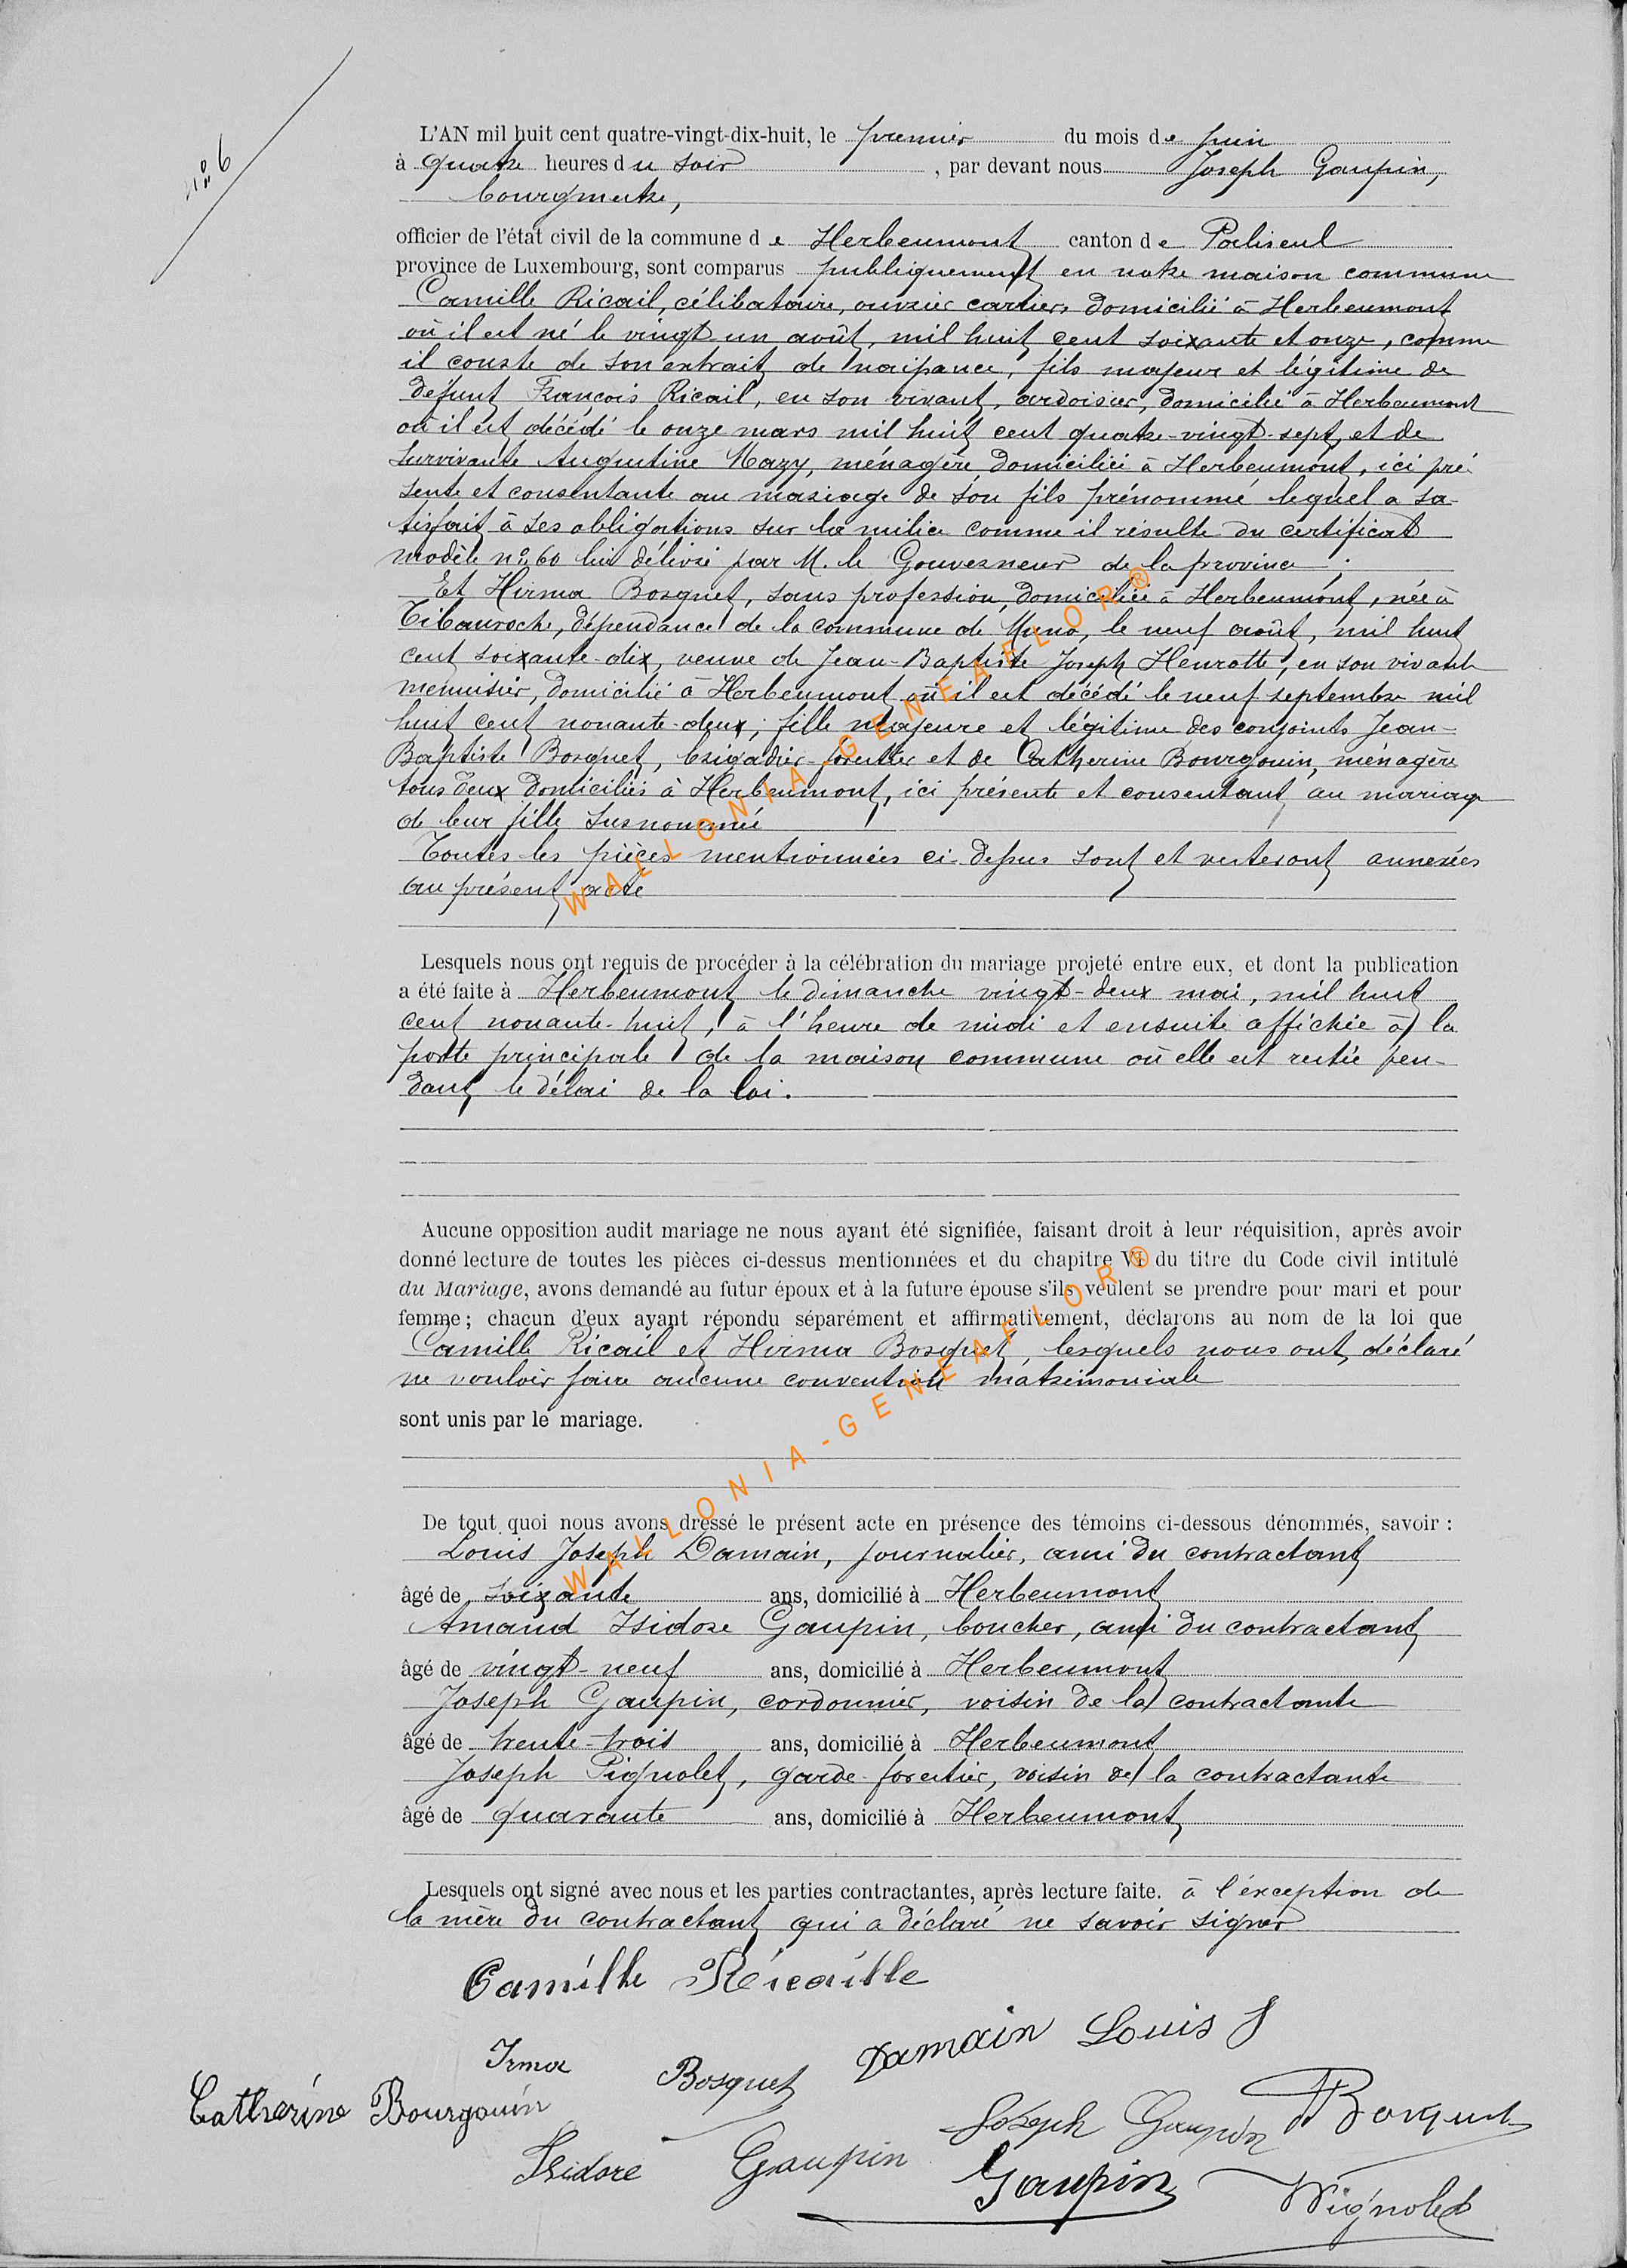 n° 6
L'AN mil huit cent quatre-vingt-dix-huit, le premier du mois de juin
à quatre heures du soir, par devant nous Joseph Gaupin,
bourgmestre,
officier de l'état civil de la commune de Herbeumont canton de Paliseul
province de Luxembourg, sont comparus publiquement en notre maison commune
Camille Ricail, célibataire, ouvrier carrier, domicilié à Herbeumont
où il est né le vingt un août, mil huit cent soixante et onze, comme
il conste de son extrait de naissance, fils majeur et légitime de
défunt François Ricail, en son vivant, ardoisier, domicilié à Herbeumont
où il est décédé le onze mars mil huit cent quatre-vingt-sept, et de
survivante Augustine Mazy, ménagère domiciliée à Herbeumont, ici pré-
sente et consentante au mariage de son fils prénommé lequel a sa-
tisfait à ses obligations sur la milice comme il résulte du certificat
modèle n° 60 lui délivré par M. le Gouverneur de la province ;
Et Hirma Bosquet, sans profession, domiciliée à Herbeumont, née à
Tibauroche, dépendance de la commune de Muno, le neuf août, mil huit
cent soixante-dix, veuve de Jean-Baptiste Joseph Henrotte, en son vivant
menuisier, domicilié à Herbeumont où il est décédé le neuf septembre mil
huit cent nonante-deux ; fille majeure et légitime des conjoints Jean-
Baptiste Bosquet, brigadier-forestier et de Catherine Bourgouin, ménagère
tous deux domiciliés à Herbeumont, ici présente et consentant au mariage
de leur fille susnommée
Toutes les pièces mentionnées ci-dessus sont et resteront annexées
au présent acte
Lesquels nous ont requis de procéder à la célébration du mariage projeté entre eux, et dont la publication
a été faite à Herbeumont le dimanche vingt-deux mai, mil huit
cent nonante-huit, à l'heure de midi et ensuite affichée à la
porte principale de la maison commune où elle est restée pen-
dant le délai de la loi.
Aucune opposition audit mariage ne nous ayant été signifiée, faisant droit à leur réquisition, après avoir
donné lecture de toutes les pièces ci-dessus mentionnées et du chapitre VI du titre du Code civil intitulé
du Mariage, avons demandé au futur époux et à la future épouse s'ils veulent se prendre pour mari et pour
femme ; chacun d'eux ayant répondu séparément et affirmativement, déclarons au nom de la loi que
Camille Ricail et Hirma Bosquet, lesquels nous ont déclaré
ne vouloir faire aucune convention matrimoniale
sont unis par le mariage.
De tout quoi nous avons dressé le présent acte en présence des témoins ci-dessous dénommés, savoir :
Louis Joseph Damain, journalier, ami du contractant
âgé de soixante ans, domicilié à Herbeumont
Amand Isidore Gaupin, boucher, ami du contractant
âgé de vingt-neuf ans, domicilié à Herbeumont
Joseph Gaupin, cordonnier, voisin de la contractante
âgé de trente-trois ans, domicilié à Herbeumont
Joseph Pignolet, garde-forestier, voisin de la contractante
âgé de quarante ans, domicilié à Herbeumont
Lesquels ont signé avec nous et les parties contractantes, après lecture faite. à l'exception de
la mère du contractant qui a déclaré ne savoir signer
Camille Récaille
Irma Bosquet Damain Louis J
Catherine Bourgouin Joseph Gaupin Bosquet
Isidore Gaupin Gaupin Pignolet
WALLONIA-GENEAFLOR®
WALLONIA-GENEAFLOR®